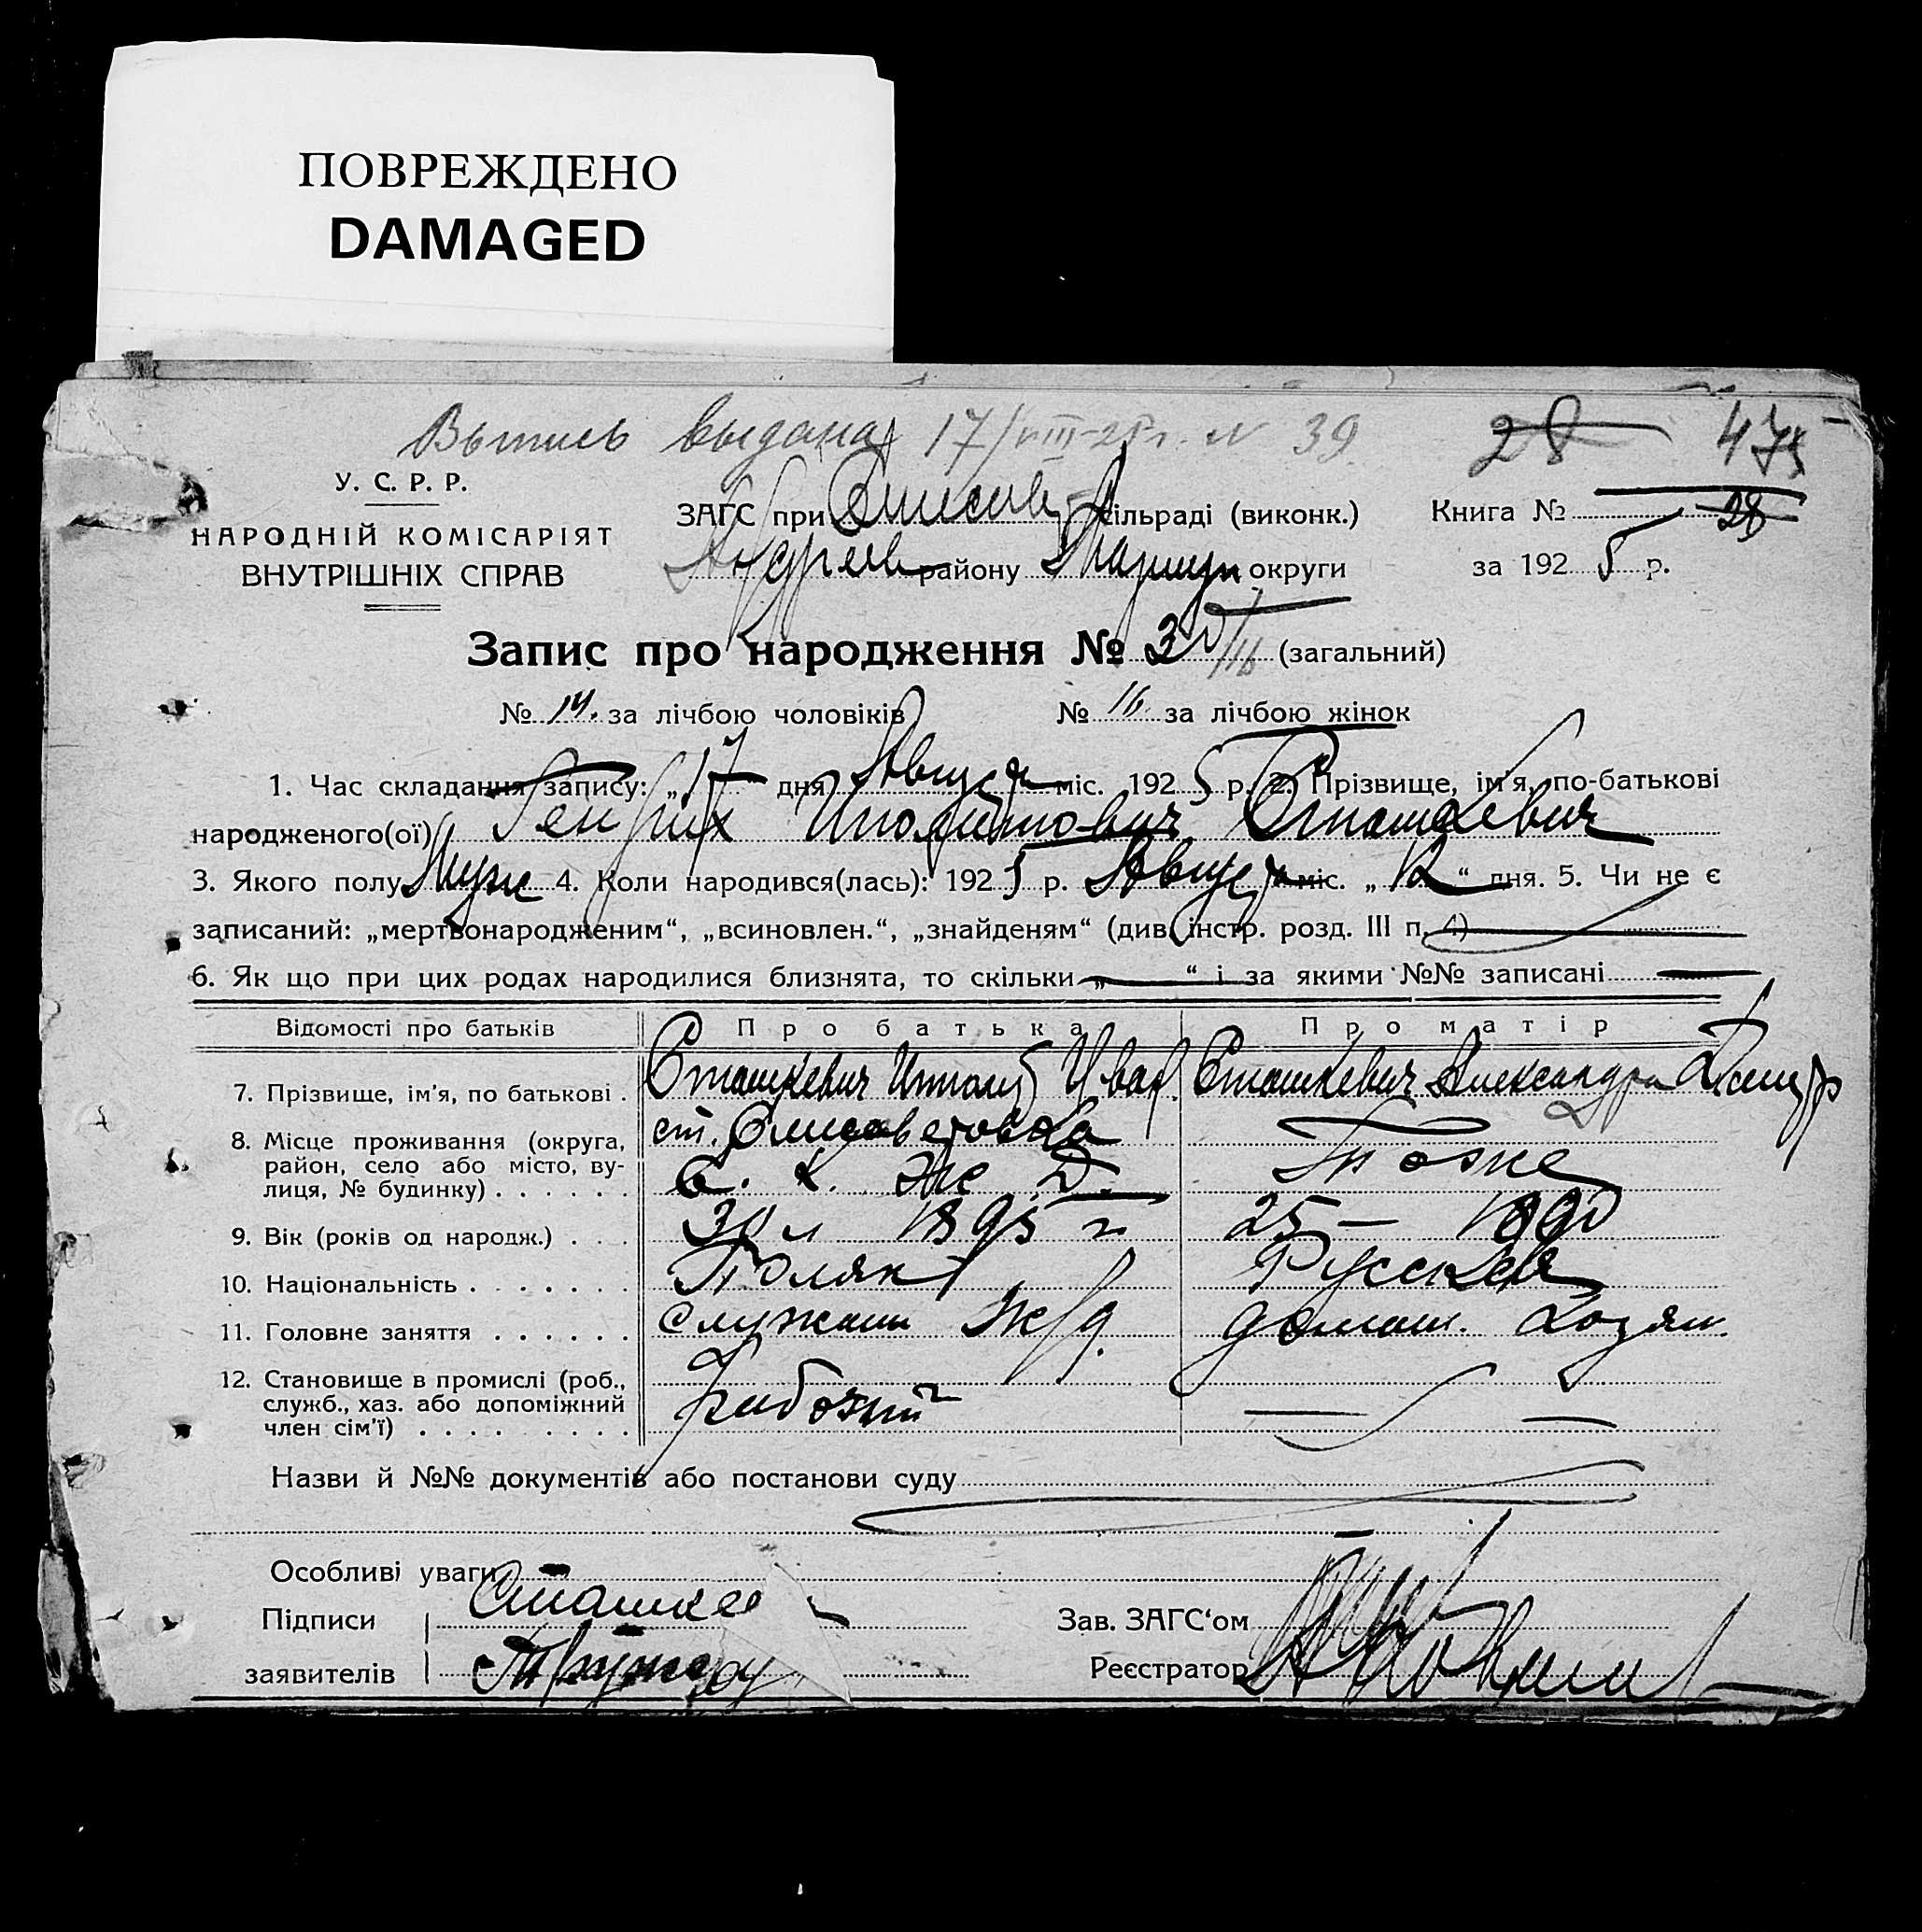 ПОВРЕЖДЕНО
DAMAGED
Выпись выдана 17/VIII-25 г. N 39 28 475
У. С. Р. Р.
НАРОДНІЙ КОМІСАРІЯТ
ВНУТРІШНІХ СПРАВ
ЗАГС при Елисав сільраді (виконк.)
району округи
Книга № 28
за 1925 р.
Запис про народження № 30/16 (загальний)
№ 14. за лічбою чоловіків № 16. за лічбою жінок
1. Час складання запису: „17 дня Августа міс. 1925 р. 2. Прізвище, ім'я, по-батькові
народженого(ої) Генрих Иполитович Сташкевич
3. Якого полу Муж 4. Коли народився(лась): 1925 р. Августа міс. „12“ дня. 5. Чи не є
записаний: „мертвонародженим“, „всиновлен.“, „знайденям“ (див. інстр. розд. III п. 4)
6. Як що при цих родах народилися близнята, то скільки „ “ і за якими №№ записані
Відомості про батьків Про батька Про матір
7. Прізвище, ім'я, по батькові . Сташкевич Иполит Иван. Сташкевич Александра
8. Місце проживання (округа, район, село або місто, вулиця, № будинку) . . . . . . ст. Елисаветовка Тоже
Е. К. Ж Д.
9. Вік (років од народж.) . . . 30 л 1895 г 25 — 1890
10. Національність . . . . . . . Поляк Русская
11. Головне заняття . . . . . . служащ ж/д. домаш. хозяй.
12. Становище в промислі (роб.,
служб., хаз. або допоміжний
член сім'ї) . . . . . . . . . рабочий
Назви й №№ документів або постанови суду
Особливі уваги
Підписи Сташкев
заявителів
Зав. ЗАГС‘ом
Реєстратор